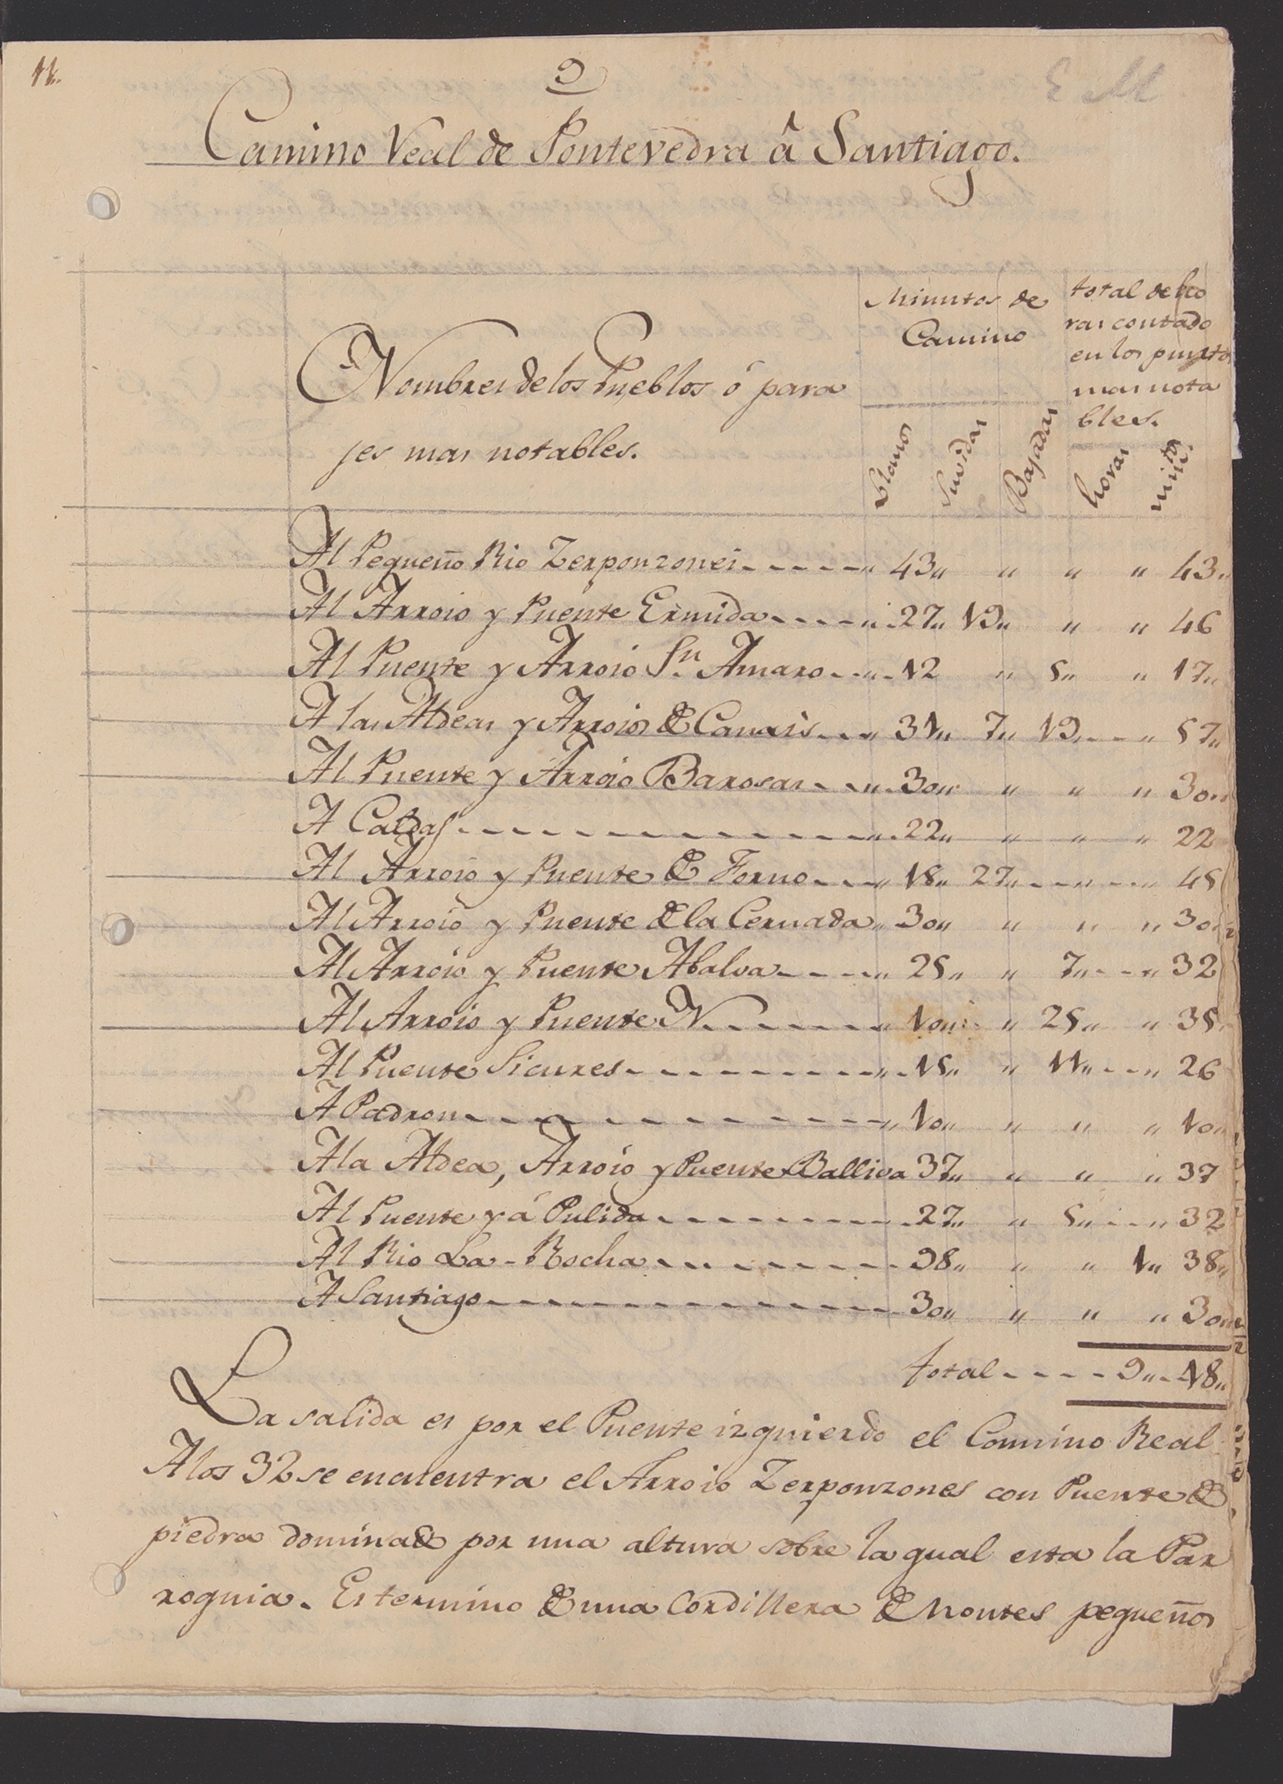 11.
9
E M
Camino Real de Pontevedra â Santiago.
Nombres de los Pueblos ó para
jes mas notables.
Minutos de
Camino
total de ho
ras contado
en los puntos
mas nota
bles.
Llanos Suvidas Bajadas horas minᵗᵒˢ.
Al Pequeño Rio Zerponzones ----- „ 43„ „ „ „ 43„
Al Arroio y Puente Ermida ---- „ 27„ 19„ „ „ 46
Al Puente y Arroio Sⁿ. Amaro -- „ 12 „ 5„ „ 17„
A las Aldeas y Arroios de Canais -- „ 31„ 7„ 19„ -- „ 57„
Al Puente y Arroio Barosas -- „ 30„ „ „ „ 30„
A Caldas ------------ „ 22„ „ „ „ 22
Al Arroio y Puente de Forno --- „ 18„ 27„ -- „ -- „ 45
Al Arroio y Puente de la Cernada „ 30„ „ „ „ 30„
Al Arroio y Puente Abalva ---- „ 25„ „ 7„ -- „ 32
Al Arroio y Puente N ------ „ 10„ „ 25„ „ 35
Al Puente Sicures -------- „ 15„ „ 11„ -- „ 26
A Padron ------------ „ 10„ „ „ „ 10„
A la Aldea, Arroio y Puente Balliva 37„ „ „ „ 37
Al Puente y á Pulida -------- 27„ „ 5„ -- „ 32
Al Rio La-Rocha -------- 98„ „ „ 1„ 38„
A Santiago ------------ 30„ „ „ „ 30„
total ---- 9„ - 18„
La salida es por el Puente izquierdo el Camino Real
A los 32 se encuentra el Arroio Zerponzones con Puente de
piedra dominado por una altura sobre la qual esta la Par
roquia. Es termino de una Cordillera de Montes pequeños